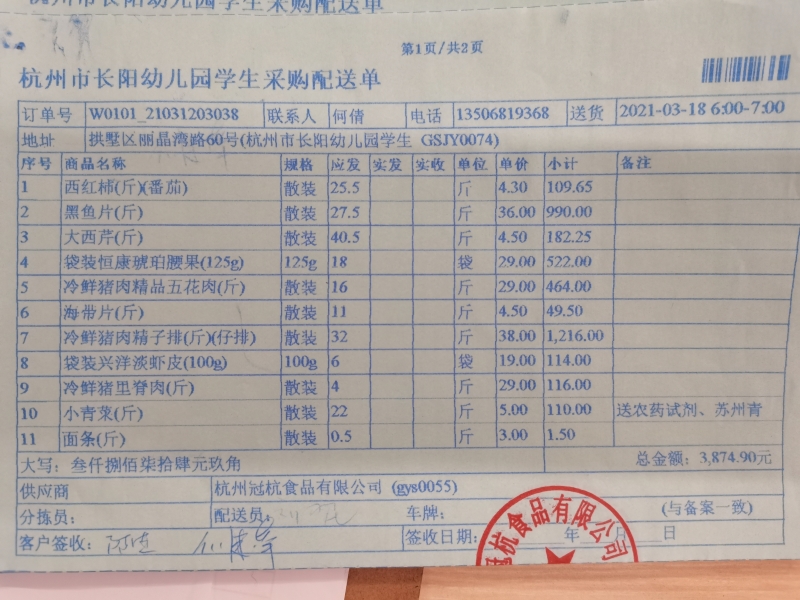 杭州市长阳幼儿园学生采购配送单
第1页/共2页
杭州市长阳幼儿园学生采购配送单
订单号 W0101_21031203038 联系人 何倩 电话 13506819368 送货 2021-03-18 6:00-7:00
地址 拱墅区丽晶湾路60号(杭州市长阳幼儿园学生 GSJY0074)
序号 商品名称 规格 应发 实发 实收 单位 单价 小计 备注
1 西红柿(斤)(番茄) 散装 25.5 斤 4.30 109.65
2 黑鱼片(斤) 散装 27.5 斤 36.00 990.00
3 大西芹(斤) 散装 40.5 斤 4.50 182.25
4 袋装恒康琥珀腰果(125g) 125g 18 袋 29.00 522.00
5 冷鲜猪肉精品五花肉(斤) 散装 16 斤 29.00 464.00
6 海带片(斤) 散装 11 斤 4.50 49.50
7 冷鲜猪肉精子排(斤)(仔排) 散装 32 斤 38.00 1,216.00
8 袋装兴洋淡虾皮(100g) 100g 6 袋 19.00 114.00
9 冷鲜猪里脊肉(斤) 散装 4 斤 29.00 116.00
10 小青菜(斤) 散装 22 斤 5.00 110.00 送农药试剂、苏州青
11 面条(斤) 散装 0.5 斤 3.00 1.50
大写：叁仟捌佰柒拾肆元玖角 总金额：3,874.90元
供应商 杭州冠杭食品有限公司 (gys0055)
分拣员： 配送员： 车牌： (与备案一致)
客户签收： 签收日期： 年 月 日
冠杭食品有限公司